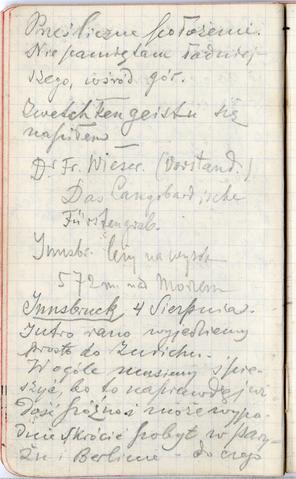 Prześliczne położenie.
Nie pamiętam ładniej
szego, wśród gór.
się
napiłem
Dr Fr. Wieser (Vorstand.)
Das Langobardische
Fürstengrab.
Innsbr. leży na wysok
572 m. nad Morzem
Innsbruck 4 Sierpnia.
Jutro rano wyjedziemy
prosto do Zurichu.
W ogóle musimy śpie-
szyć, bo to naprawdę już
dość późno i może wypa-
dnie skrócić pobyt w Pary-
żu i Berlinie - do czego